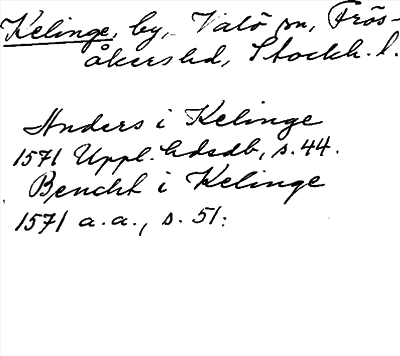 Kelinge, by, Valö sn, Frös-
åkers hd, Stockh. l.
Anders i Kelinge
1571 Uppl. hdsdb, s. 44.
Bencht i Kelinge
1571 a. a., s. 51: